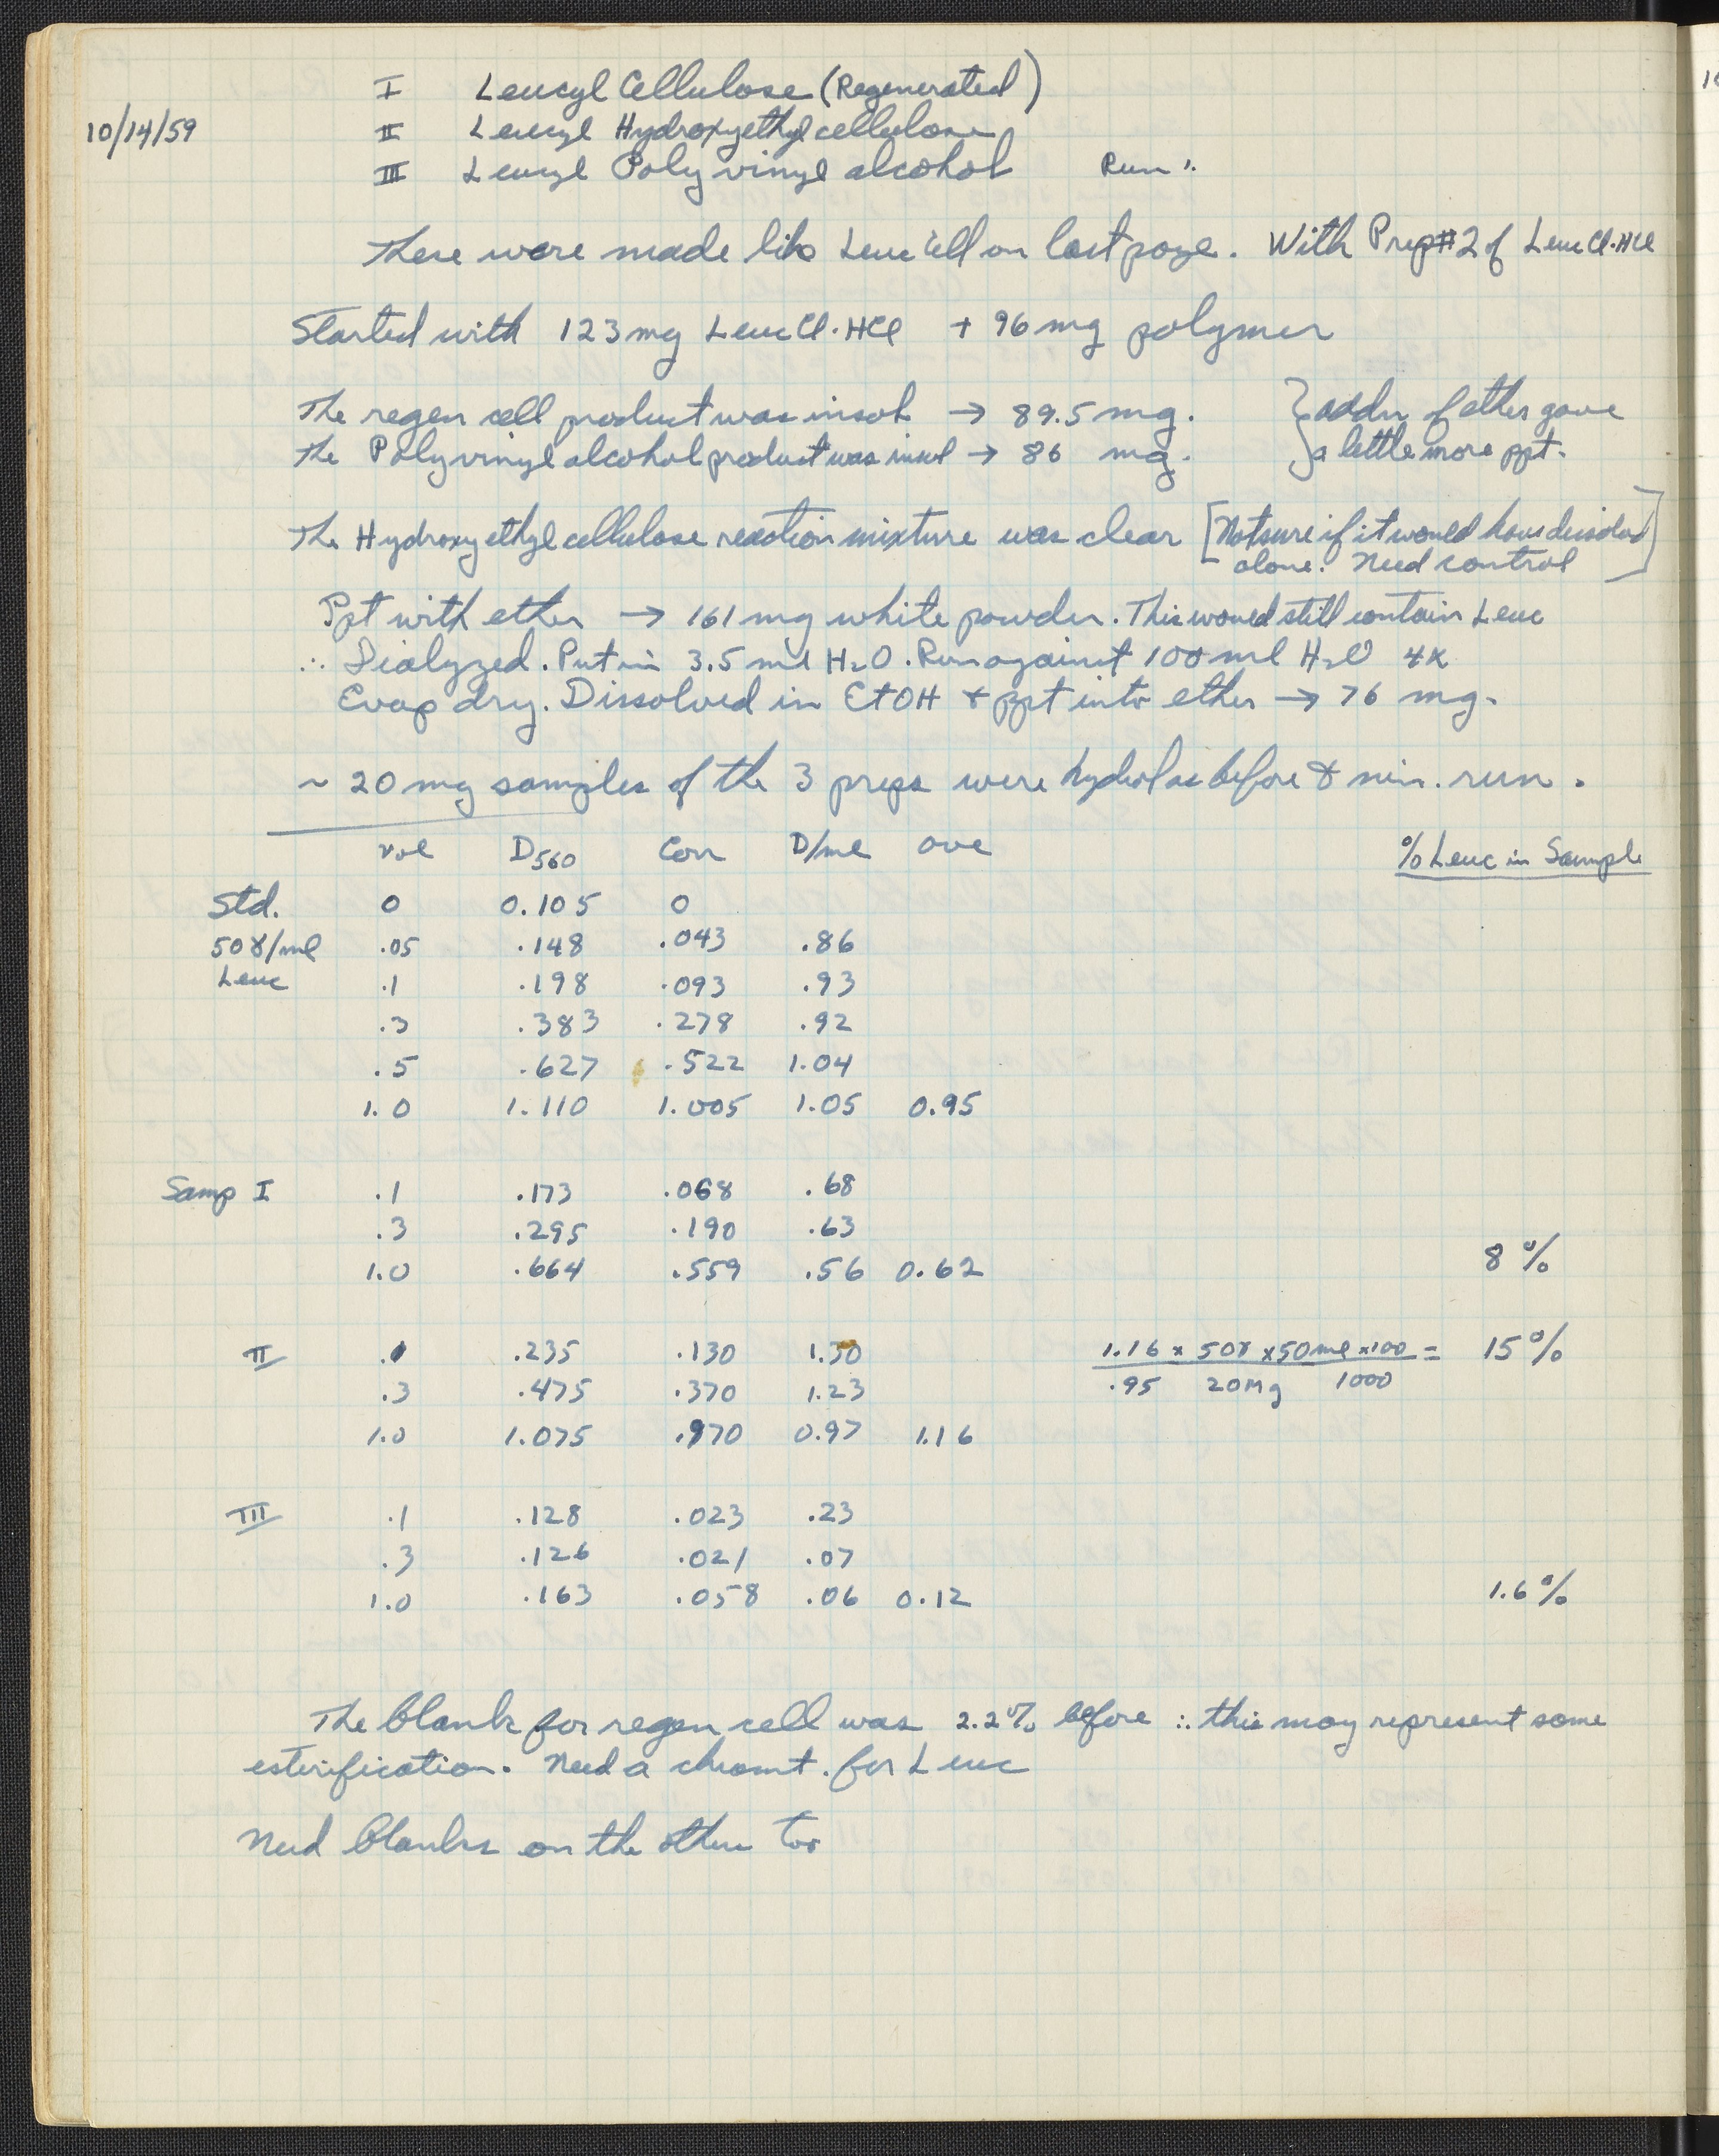 I Leucyl Cellulose (Regenerated)
10/14/59 II Leucyl Hydroxyethylcellulose
III Leucyl Polyvinyl alcohol Run
These were made like Leuc Cell on last page. With Prep #2 of Leuc Cl·HCl
Started with 123 mg Leuc Cl·HCl + 96 mg polymer
The regen cell product was insol → 89.5 mg. } addn of ether gave
The Polyvinyl alcohol product was insol → 86 mg. } a little more ppt.
The Hydroxy ethyl cellulose reaction mixture was clear [Not sure if it would have dissolved
alone. Need control]
Ppt with ether → 161 mg white powder. This would still contain Leuc
∴ Dialyzed. Put in 3.5 ml H2O. Run against 100 ml H2O 4x
Evap dry. Dissolved in EtOH & ppt into ether → 76 mg.
~ 20 mg samples of the 3 preps were hydrol as before & nin. run.
vol D560 Corr D/ml ave % Leuc in Sample
Std. 0 0.105 0
50γ/ml .05 .148 .043 .86
Leuc .1 .198 .093 .93
.3 .383 .278 .92
.5 .627 .522 1.04
1.0 1.110 1.005 1.05 0.95
Samp I .1 .173 .068 .68
.3 .295 .190 .63
1.0 .664 .559 .56 0.62 8%
II .1 .235 .130 1.30 1.16 x 50γ x 50ml x 100 = 15%
.95 20mg 1000
.3 .475 .370 1.23
1.0 1.075 .970 0.97 1.16
III .1 .128 .023 .23
.3 .126 .021 .07
1.0 .163 .058 .06 0.12 1.6%
The blank for regen cell was 2.2% before ∴ this may represent some
esterification. Need a chromt. for Leuc
Need blanks on the other two